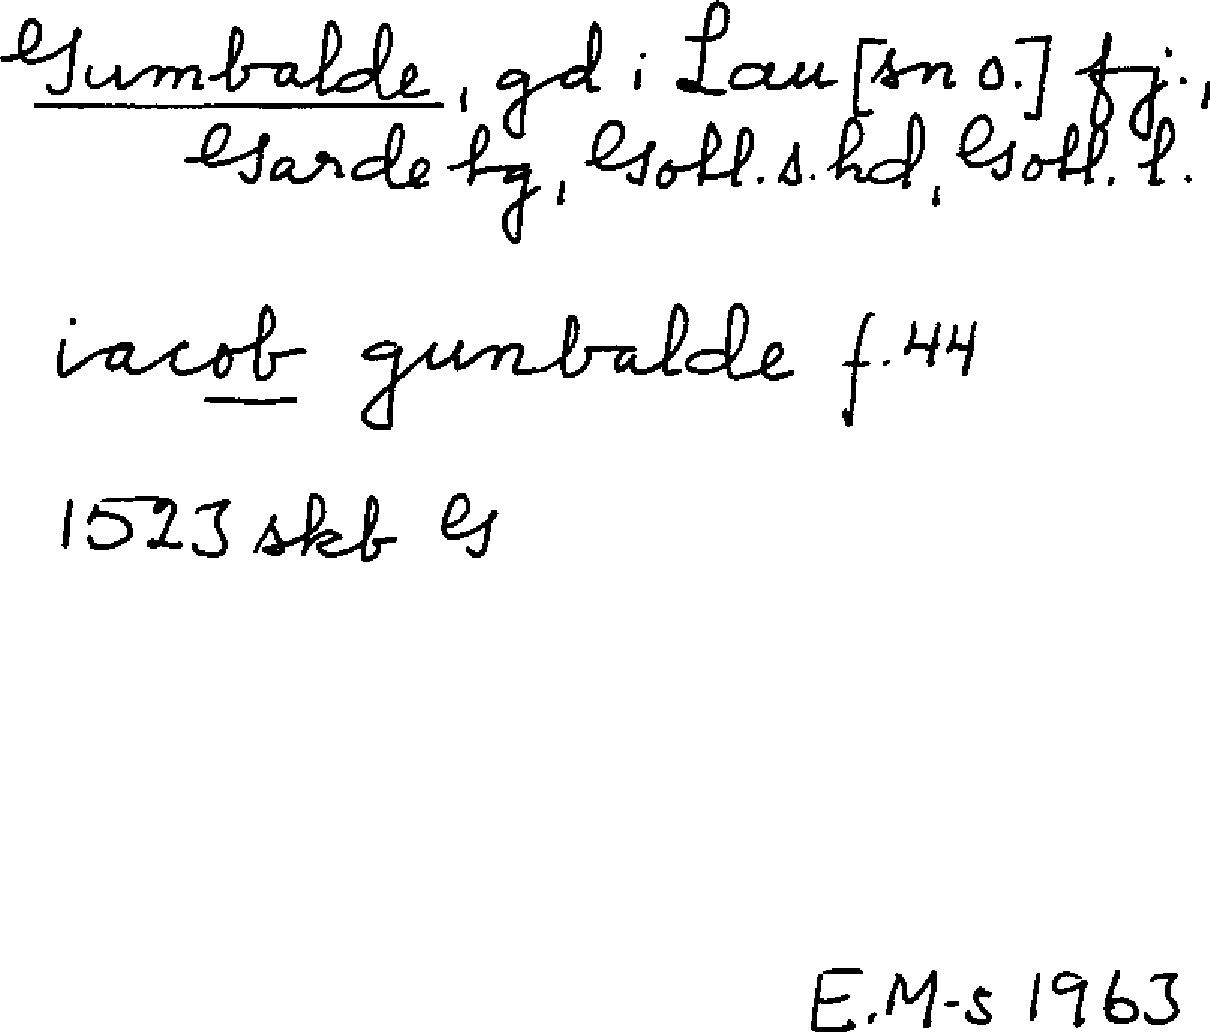 Gumbalde, gd i Lau [sn o.] fj.,
Garde tg, Gotl. s. hd, Gotl. l.
iacob gunbalde f. 44
1523 skb G
E.M-s 1963